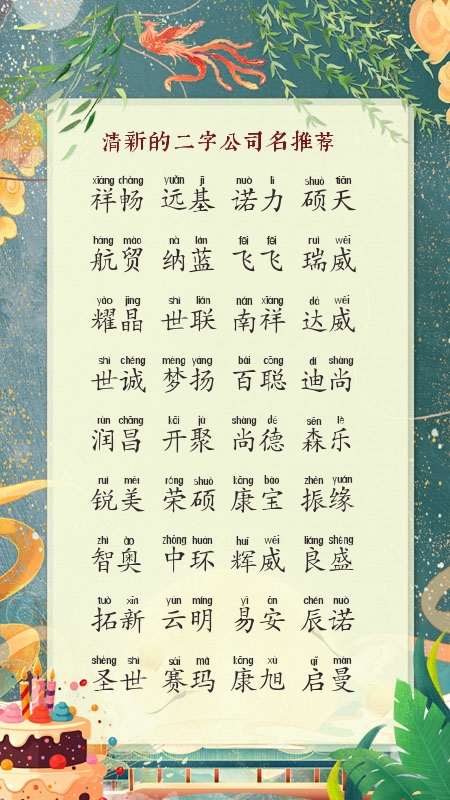 清新的二字公司名推荐
xiáng chàng yuǎn jī nuò lì shuò tiān
祥畅 远基 诺力 硕天
háng mào nà lán fēi fēi ruì wēi
航贸 纳蓝 飞飞 瑞威
yào jīng shì lián nán xiáng dá wēi
耀晶 世联 南祥 达威
shì chéng mèng yáng bǎi cōng dí shàng
世诚 梦扬 百聪 迪尚
rùn chāng kāi jù shàng dé sēn lè
润昌 开聚 尚德 森乐
ruì měi róng shuò kāng bǎo zhèn yuán
锐美 荣硕 康宝 振缘
zhì ào zhōng huán huī wēi liáng shèng
智奥 中环 辉威 良盛
tuò xīn yún míng yì ān chén nuò
拓新 云明 易安 辰诺
shèng shì sài mǎ kāng xù qǐ màn
圣世 赛玛 康旭 启曼